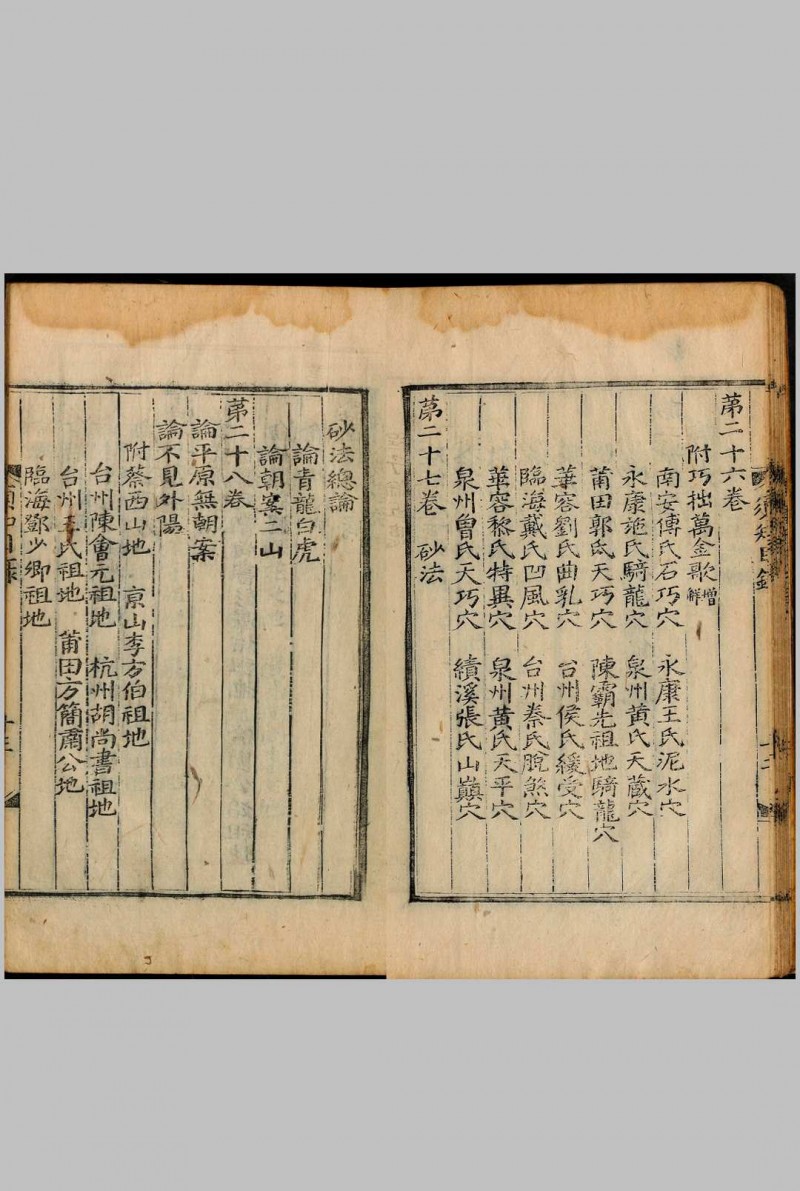 第二十六卷
附巧拙萬金歌增解
南安傅氏石巧穴 永康王氏泥水穴
永康施氏騎龍穴 泉州黄氏天藏穴
莆田郭氏天巧穴 陳霸先祖地騎龍穴
華容劉氏曲乳穴 台州侯氏緩受穴
臨海戴氏凹風穴 台州秦氏脫煞穴
華容黎氏特異穴 泉州黄氏天平穴
泉州曾氏天巧穴 績溪張氏山巔穴
第二十七卷 砂法
砂法總論
論青龍白虎
論朝案二山
第二十八卷
論平原無朝案
論不見外陽
附蔡西山地 京山李方伯祖地
台州陳會元祖地 杭州胡尚書祖地
台州王氏祖地 莆田方簡肅公地
臨海鄭少卿祖地